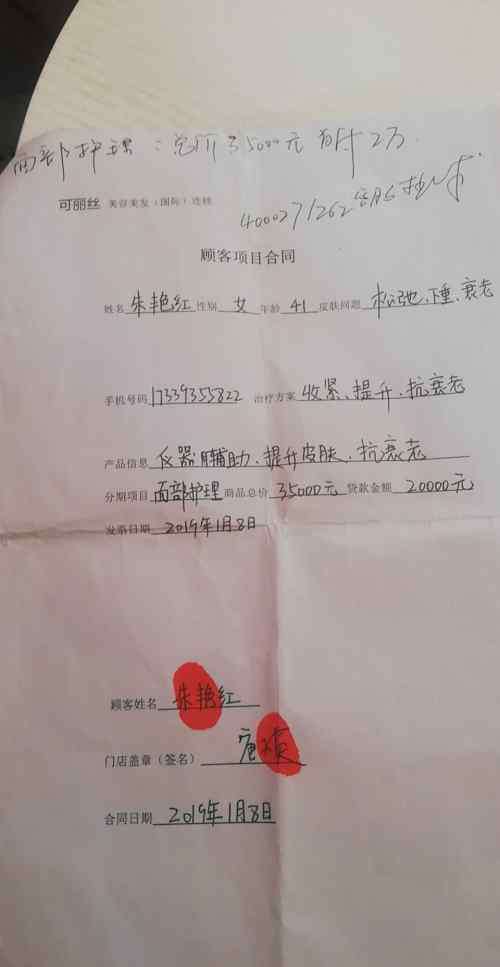 面部护理：总价35000元 分付2万
4000271262
可丽丝 美容美发（国际）连锁
顾客项目合同
姓名 朱艳红 性别 女 年龄 41 皮肤问题 松弛、下垂、衰老
手机号码 17339355822 治疗方案 收紧、提升、抗衰老
产品信息 仪器辅助、提升皮肤、抗衰老
分期项目 面部护理 商品总价 35000元 贷款金额 20000元
发票日期 2019年1月8日
顾客姓名 朱艳红
门店盖章（签名）
合同日期 2019年1月8日